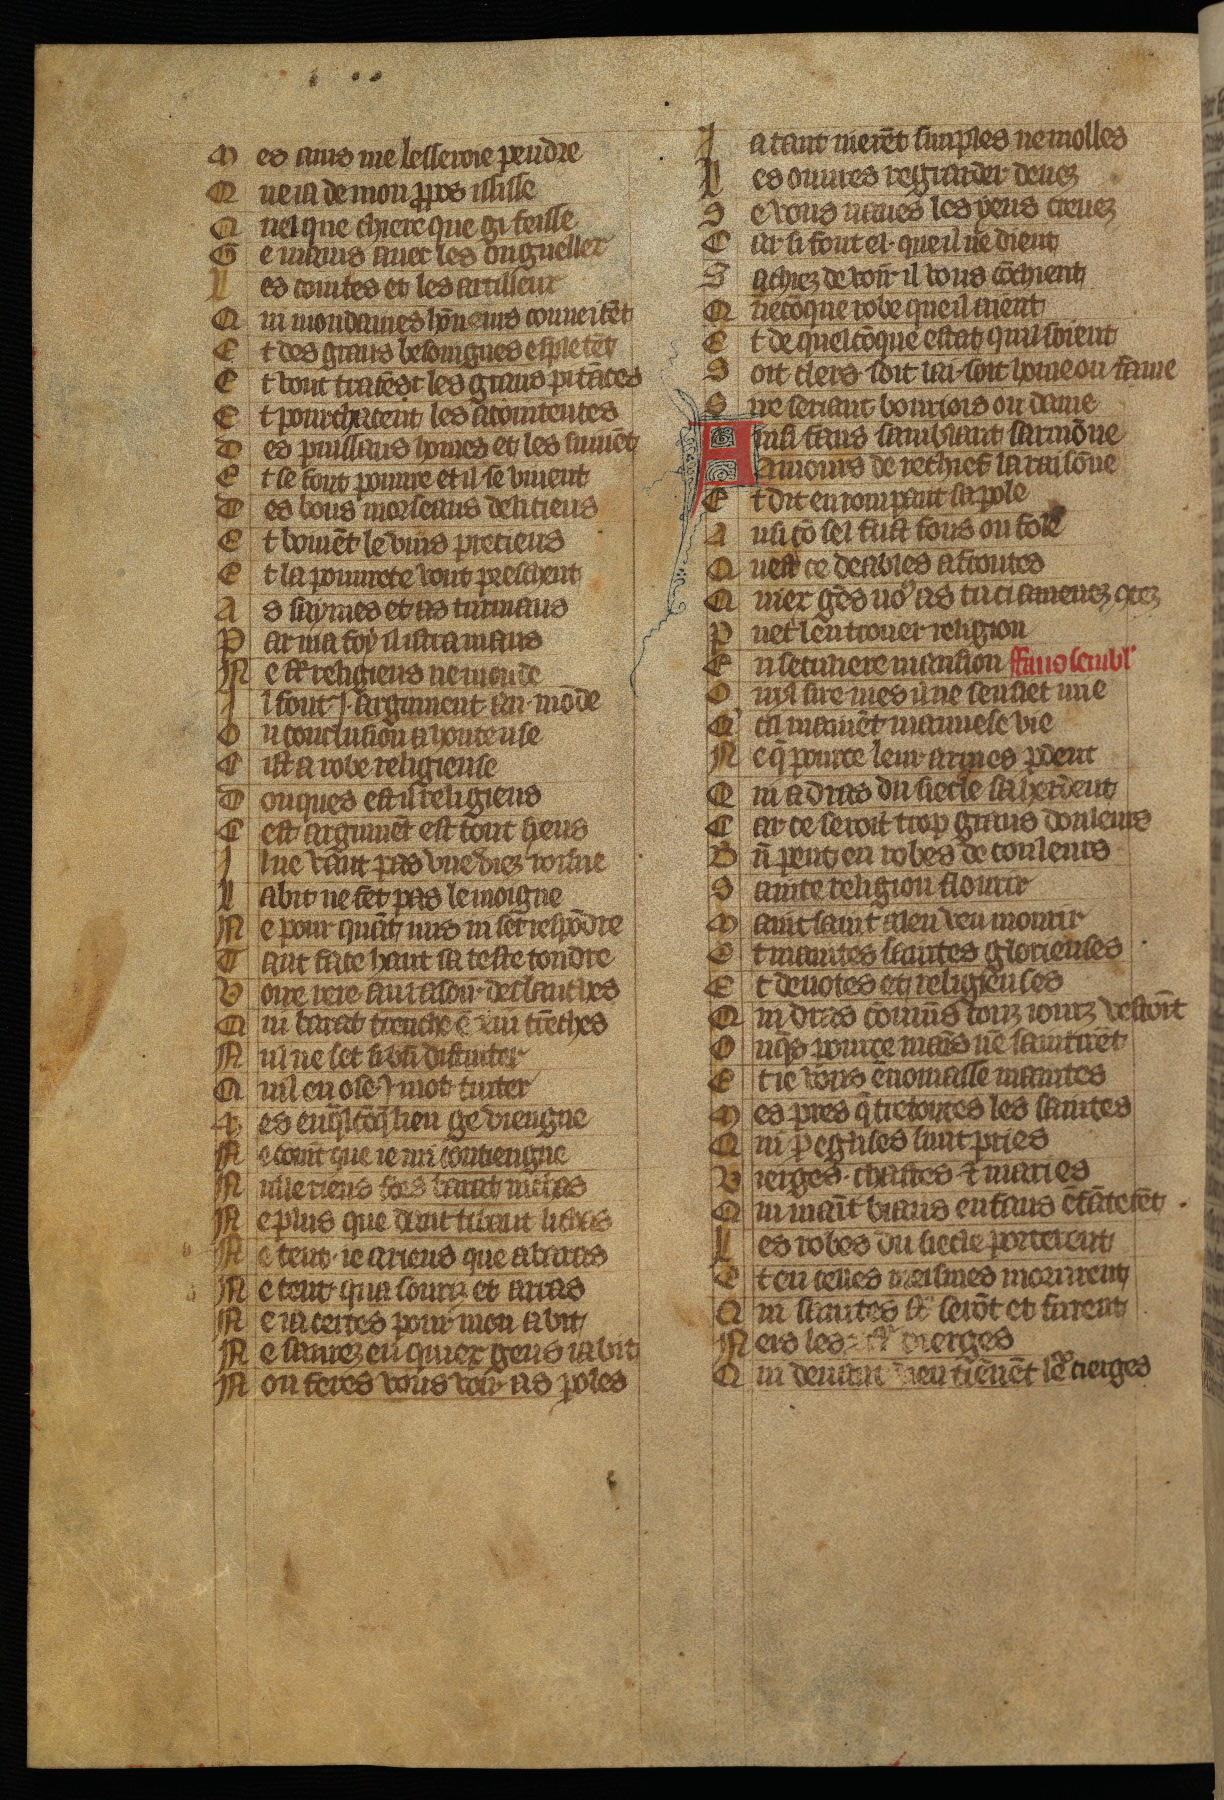 Mes ains me lesseroie pendre
Que ia de mon ꝓpos ississe
Quel que chiere que gi feisse
Ge mains auec les orguelleꝰ
Les cointes et les artilleus
Qui mondaines hōneurs conueitēt
Et des grans besoingnes espletēt
Et vont tracent les grans pitāces
Et pourchacent les acointences
Des puissans homes et les siuuēt
Et se font poure et il se viuent
Des bons morseaus delitieus
Et boiuēt le vins precieus
Et la pourrete vont preschent
As saymes et as turmaus
Par ma foy il istra maus
Ne st̄ religieus ne monde
Il font .i. argument au mōde
Ou conclusion a honteuse
Cist a robe religieuse
Donques est il religieus
Cest argumēt est tout fieus
Il ne vaut pas vne diez roine
Labit ne fet pas le moigne
Ne pour quāt nus ni set respōdre
Tant face haut sa teste tondre
Voire rere au rasoir declanches
Qui barat trenche ē xiii trēches
Nul ne set si biē distinter
Quil en ose .i. mot tinter
Mes en q̄l cōq̄ lieu ge viengne
Ne comt̄ que ie mi contiengne
Nulle riens fors barat nichas
Ne plus que dant tibaut li chas
Ne tent ie a riens que a baras
Ne tent qua souriz et a ras
Ne ia certes pour mon abit
Ne saurez en quiex gens iabit
Non feres vous voir as ꝑoles
Ia tant nierēt simples ne molles
Les ouures regarder deuez
Se vous naues les yeus creuez
Car si font el que il ne dient
Sachiez de voir il vous cōchient
Quecōque robe que il aient
Et de quelcōque estat quil soient
Soit clers soit lai soit home ou fame
Sire seriant bouriois ou dame
Ainsi faus samblant sarmōne
Amours de rechief la raisōne
Et dit en rompant sa ꝑole
Ausi cō sel fust fous ou fole
Quest ce deables a froutes
Quiex gēs nꝰ as tu ci amenez
Puet lēn trouer religion
En seculiere mansion ffaus sembl'
Oujl sire mes il ne sensiet mie
Qͥl mainēt mauuese vie
Ne q̄ pource leur armes ꝑdent
Qui a dras du siecle saherdent
Car ce seroit trop grans douleurs
Bn̄ peut en robes de couleurs
Sainte religion flourir
Maint saint a len veu mourir
Et maintes saintes glorieuses
Et deuotes et religieuses
Qui dras cōmūs touz iourz vestoīt
Onqs pource mais ne saintirēt
Et ie vous ē nomasse maintes
Mes pres q̄ tretoutes les saintes
Qui ꝑ eglises sunt pries
Vierges chastes ⁊ maries
Qui maīt biaus enfans ēfāterēt
Les robes du siecle porterent
Et en celles meismes morurent
Qui saintes st̄ serōt et furent
Neis les vierges
Qui deuant dieu tienēt lꝰ cierges